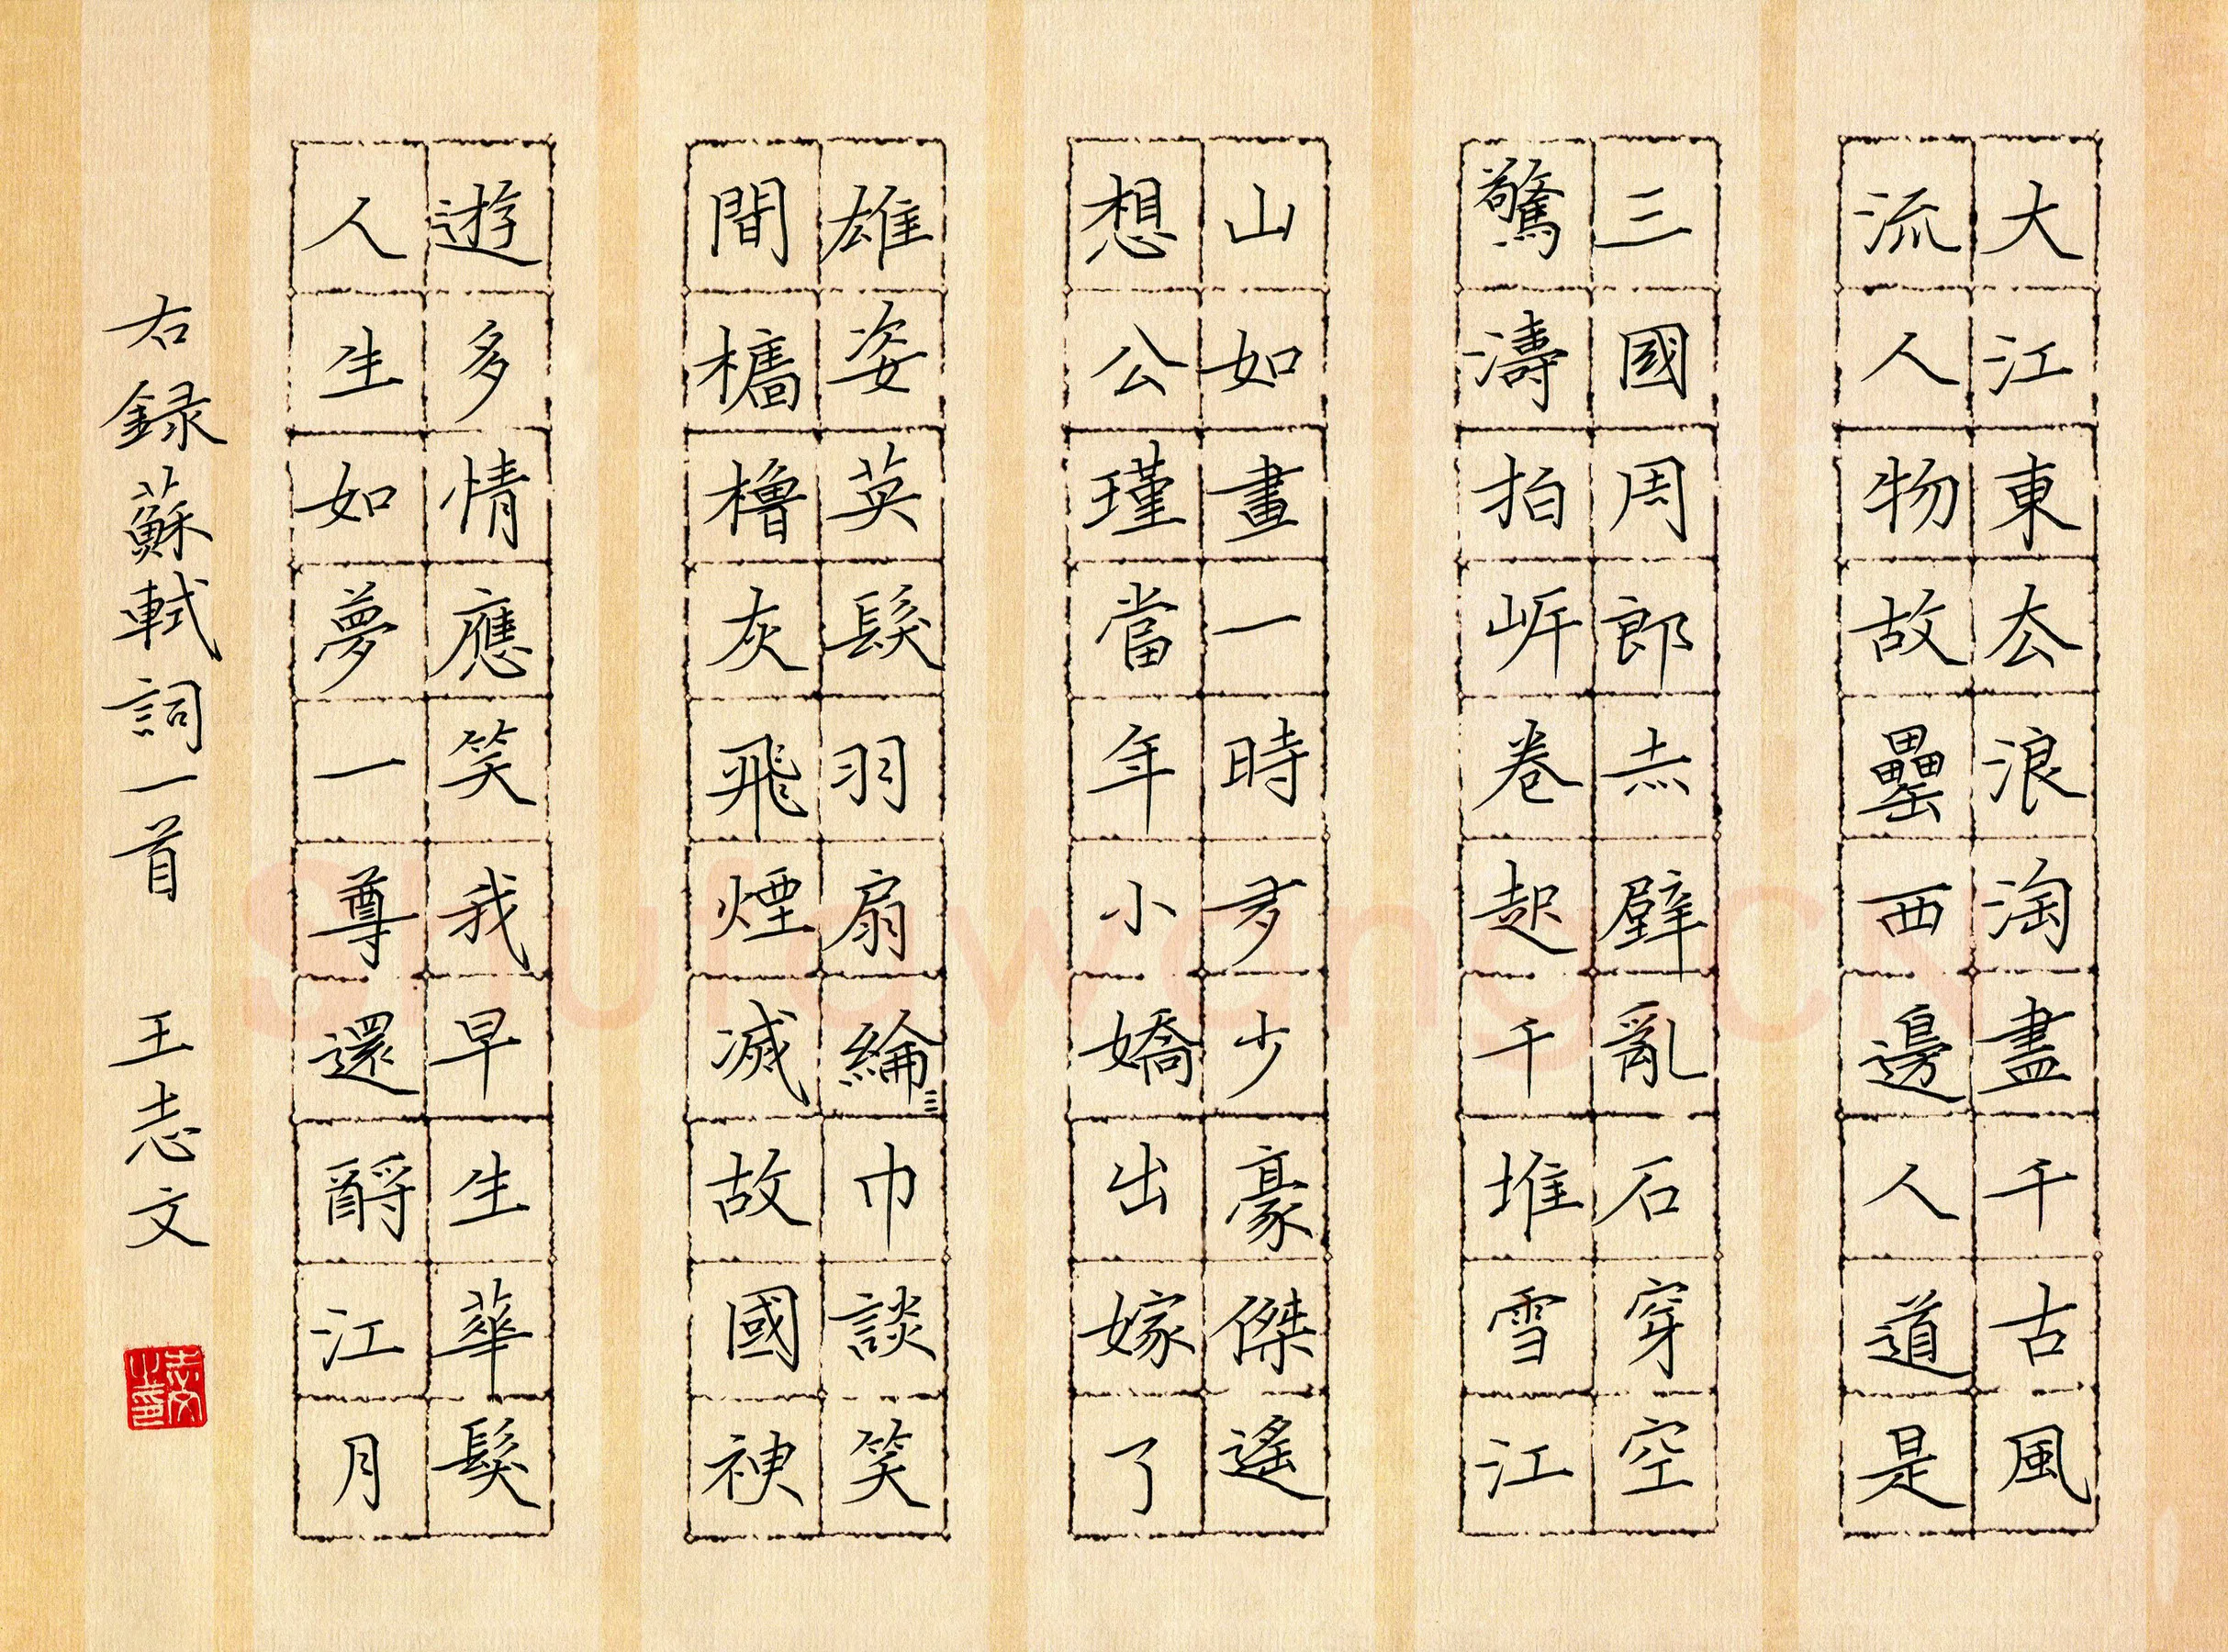 大江東去浪淘盡千古風
流人物故壘西邊人道是
三國周郎赤壁亂石穿空
驚濤拍岸卷起千堆雪江
山如畫一時多少豪傑遙
想公瑾當年小嬌出嫁了
雄姿英髮羽扇綸巾談笑
間檣櫓灰飛煙滅故國神
遊多情應笑我早生華髮
人生如夢一尊還酹江月
右録蘇軾詞一首 王志文
志文之印